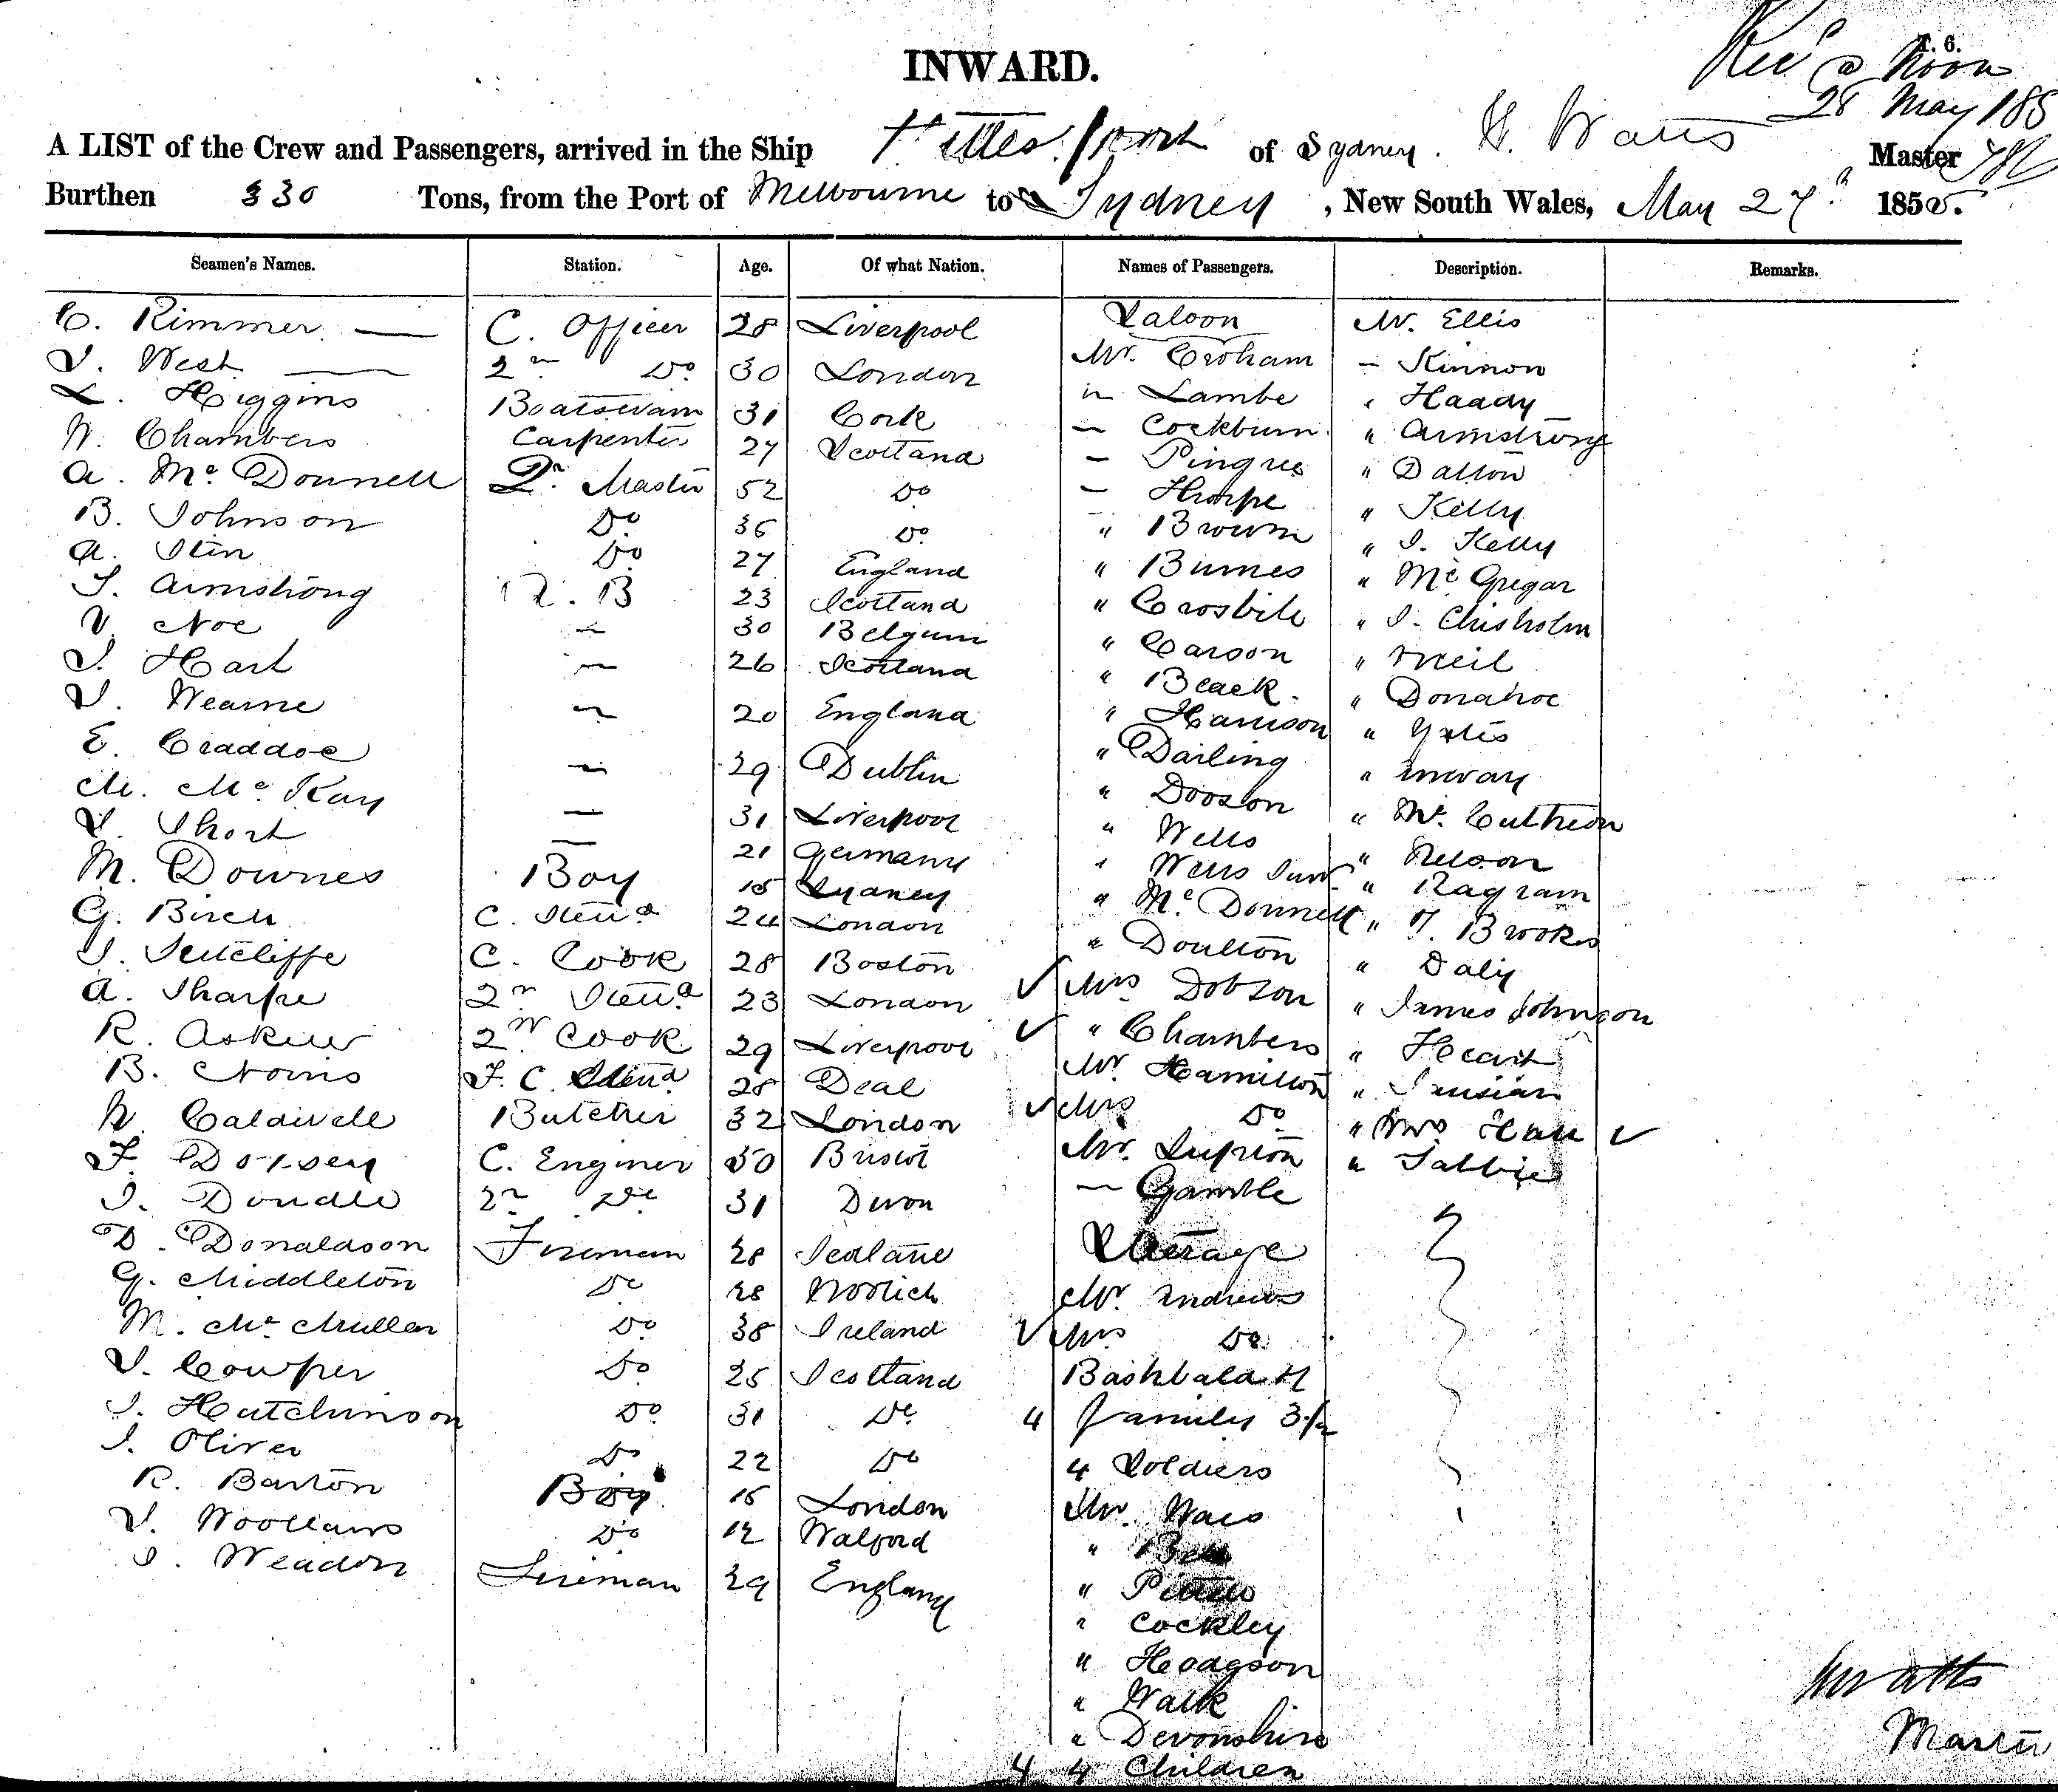 T. 6.
Rec'd @ Noon
28 May 185
INWARD.
A LIST of the Crew and Passengers, arrived in the Ship of Sydney. Watts Master
Burthen 330 Tons, from the Port of Melbourne to Sydney, New South Wales, May 27th 185
Seamen's Names. Station. Age. Of what Nation. Names of Passengers. Description. Remarks.
C. Rimmer — C. Officer 28 Liverpool Saloon Mr. Ellis
J. West — 2n Do 30 London Mr. Croham — Kinnon
L. Higgins Boatswain 31 Cork " Lambe " Haady
W. Chambers Carpenter 27 Scotland — Cockburn " Armstrong
A. Mc Donnell Qr. Master 52 Do — Pingree " Dalton
B. Johnson Do 36 Do — Thorpe " Kelly
A. Stin Do 27 England " Brown " J. Kelly
J. Armstrong A. B 23 Scotland " Burnes " Mc Gregar
V. Noe — 30 Belgum " Crosbile " J. Chisholm
J. Hart — 26 Scotland " Carson " Neil
J. Wearne — 20 England " Black " Donahoe
E. Craddoc — 29 Dublin " Harrison " Yates
M. Mc Kay — 31 Liverpool " Darling
J. Short — 21 Germany " Dobson " Mc. Cutheon
M. Downes Boy 15 Sydney " Wells " Nelson
G. Birch C. Steud 24 London " Wells Junr " Ragram
J. Sutcliffe C. Cook 28 Boston " Mc Donnell " T. Brookes
A. Sharpe 2n Steud 23 London " Doulton " Daly
R. Askew 2n Cook 29 Liverpool ✓ Mrs Dobson " James Johnson
B. Norris F. C. Steud 28 Deal ✓ " Chambers " Heart
W. Caldwell Butcher 32 London Mr. Hamilton
F. Dorsey C. Enginer 50 Bristol ✓ Mrs Do " Mrs Hall ✓
J. Doudle 2n Do 31 Devon Mr. Lupton
D. Donaldson Fireman 28 — Gamble
G. Middleton Do 28 Woolich Steerage
M. Mc Mullen Do 38 Ireland Mr. Andrews
J. Cowper Do 25 Scotland ✓ Mrs Do
J. Hutchinson Do 31 Do
J. Oliver Do 22 Do 4 family 3/2
R. Barton Boy 15 London 4 Soldiers
J. Do 12 Walford Mr.
J. Weadon Fireman 29 England "
"
" Cockley
" Hodgson
" Walk
" Devonshire
4 4 Children
Watts
Master